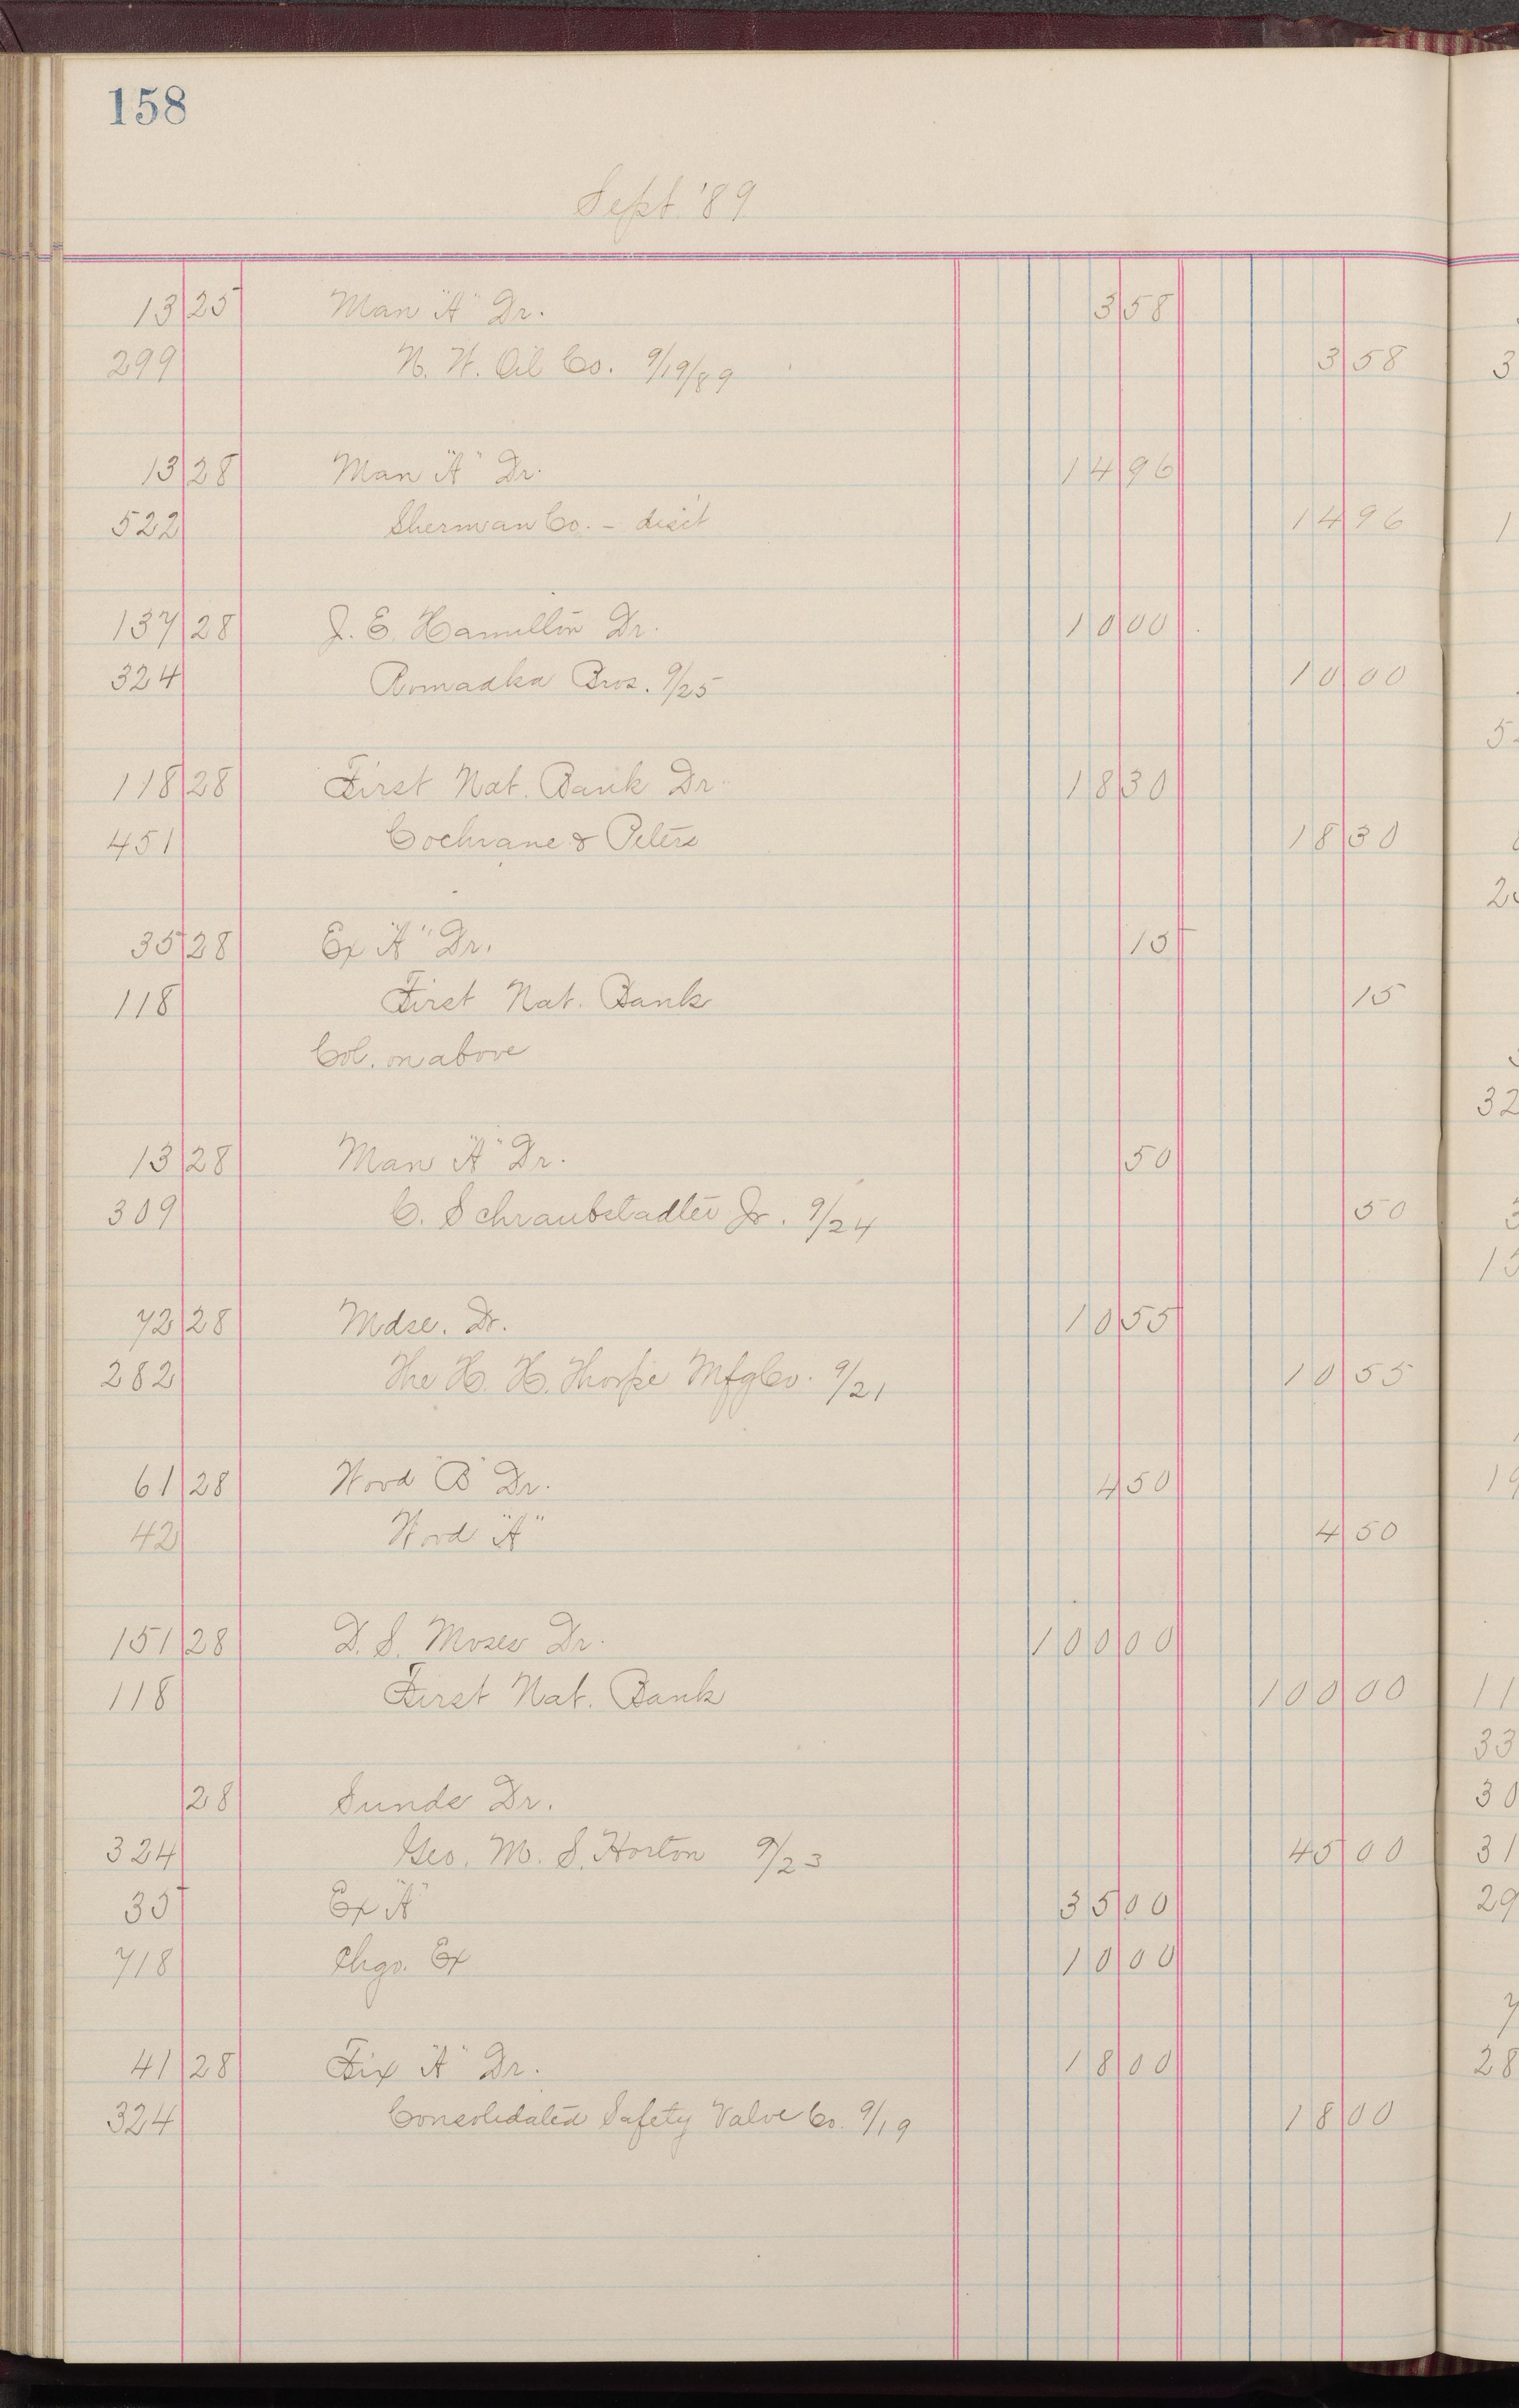 158
Sept. '89
13 25 Man "A" Dr. 3 58
299 N. W. Oil Co. 9/19/89 3 58
13 28 Man "A" Dr. 14 96
522 Sherman Co. - disc't 14 96
137 28 J. E. Hamilton Dr. 10 00
324 Romadka Bros. 9/25 10 00
118 28 First Nat. Bank Dr. 18 30
451 Cochrane & Peters 18 30
35 28 Ex "A" Dr. 15
118 First Nat. Bank 15
Col. on above
13 28 Man "A" Dr. 50
309 C. Schraubstadter Jr. 9/24 50
72 28 Mdse. Dr. 10 55
282 The H. H. Thorpe Mfg Co. 9/21 10 55
61 28 Wood "B" Dr. 4 50
42 Wood "A" 4 50
151 28 D. S. Moses Dr. 100 00
118 First Nat. Bank 100 00
28 Sunds Dr.
324 Geo. M. S. Horton 9/23 45 00
35 Ex "A" 35 00
718 Chgo. Ex 10 00
41 28 Fix "A" Dr. 18 00
324 Consolidated Safety Valve Co. 9/19 18 00